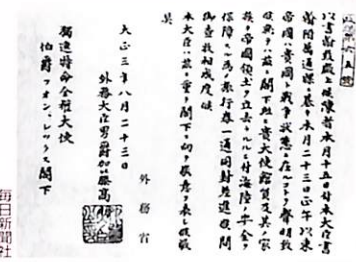 以書翰致啓上候陳者本月十五日付本大臣書
翰所載通牒ニ基キ本月二十三日正午以来
帝國ハ貴國ト戰争状態ニ在ルコトヲ聲明致
候就テハ茲ニ閣下竝ニ貴大使館員及其ノ家
族ノ帝國領土ヲ立去ラルルニ付海陸ノ安全ヲ
保障スル為メ旅行券一通同封差進候間
御査收相成度候
本大臣ハ茲ニ重テ閣下ニ向テ敬意ヲ表シ候敬
具
大正三年八月二十三日
外務大臣男爵加藤高明
獨逸特命全權大使
伯爵フォン、レックス閣下
外務省
毎日新聞社